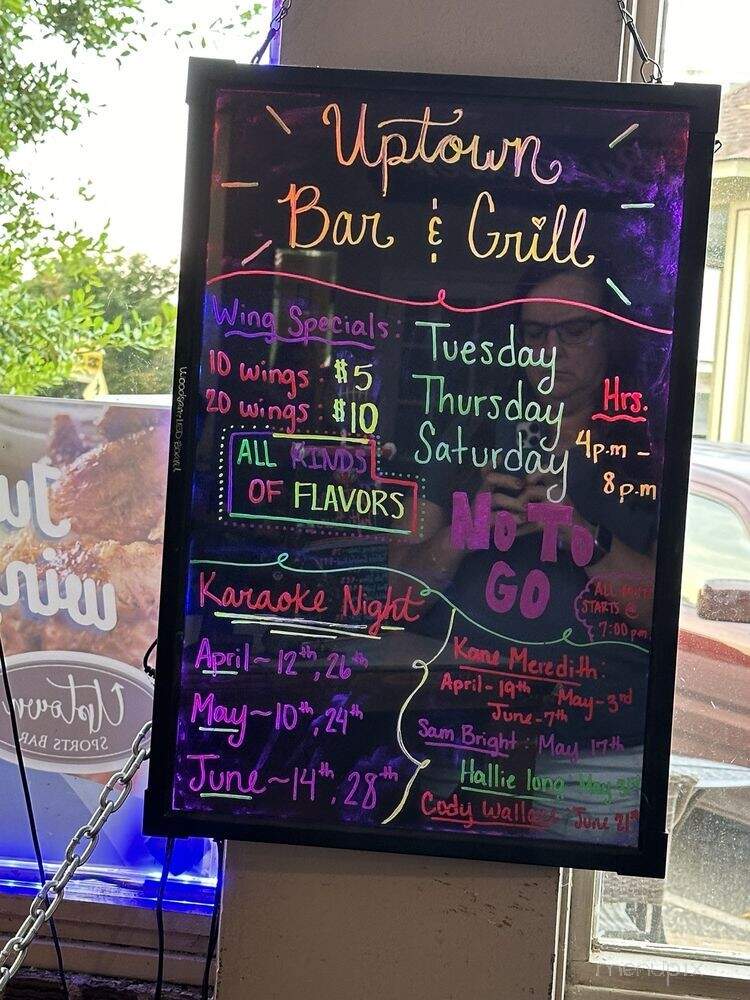 Uptown
Bar & Grill
Wing Specials:
10 wings: $5
20 wings: $10
ALL KINDS
OF FLAVORS
Tuesday
Thursday
Saturday
Hrs.
4p.m -
8p.m
NO TO
GO
ALL
STARTS @
7:00pm
Karaoke Night
April~ 12th, 26th
May~10th, 24th
June~14th, 28th
Kane Meredith:
April-19th May-3rd
June-7th
Sam Bright: May 17th
Hallie long May
Cody Wallace June 21st
WOODSAM LED BOARD
Ju
win
Uptown
SPORTS BAR
menupix